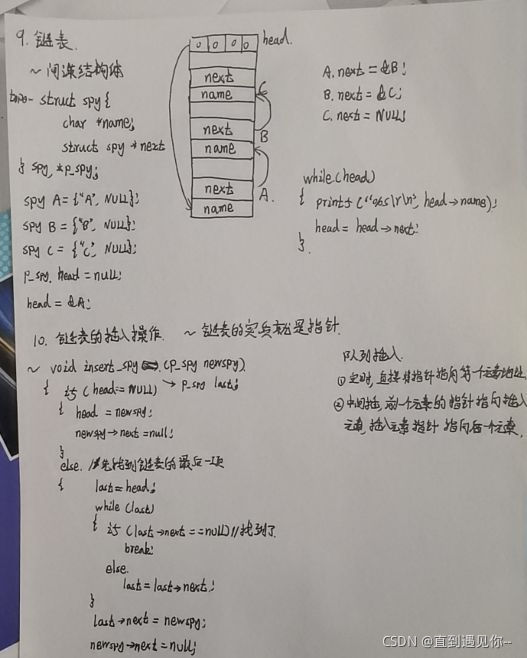 9. 链表
~ 间谍结构体
struct spy {
char *name;
struct spy *next
} spy, *p_spy;
spy A = {"A", NULL};
spy B = {"B", NULL};
spy C = {"C", NULL};
p_spy head = null;
head = &A;
0 0 0 0 head.
next
name
next B
name
next A.
name
A.next = &B;
B.next = &C;
C.next = NULL;
while (head)
{ printf ("%s\r\n", head→name);
head = head→next;
}.
10. 链表的插入操作. ~ 链表的实兵就是指针.
~ void insert_spy (p_spy newspy)
→ p_spy last;
{ if (head == NULL)
{ head = newspy;
newspy→next = null;
}
else. //先找到链表的最后一项
{ last = head;
while (last)
{ if (last→next == null) //找到了.
break;
else.
last = last→next;
}
last→next = newspy;
newspy→next = null;
队列插入.
①空时, 直接将指针指向第一个元素地址
②中间插, 前一个元素的指针指向插入
元素, 插入元素指针指向后一个元素.
CSDN @直到遇见你--